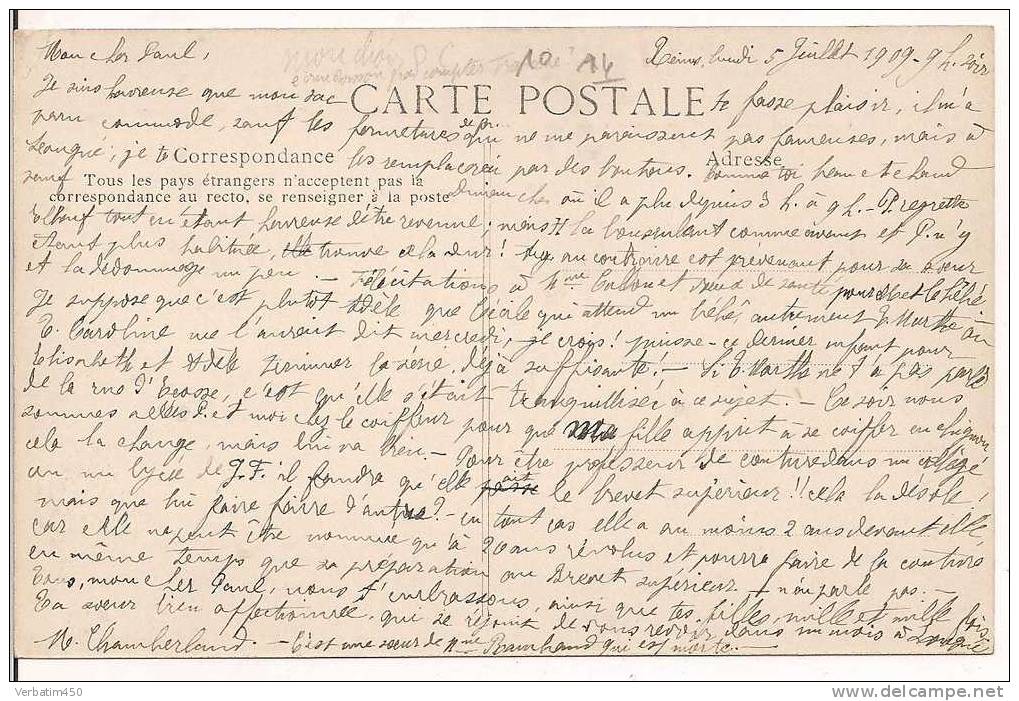 Mon cher Paul,
Reims, lundi 5 Juillet 1909 - 9 h. soir
Je suis heureuse que mon sac
CARTE POSTALE
te fasse plaisir, il m'a
paru commode, sauf les fermetures qui ne me paraissent pas fameuses, mais à
je te
Correspondance
les remplacerai par des boutons.
Adresse
comme toi beau et chaud
sauf
Tous les pays étrangers n'acceptent pas la
correspondance au recto, se renseigner à la poste
dimanche où il a plu depuis 3 h. à 9 h. - P. regrette
tout en étant heureuse d'être revenue; mons H la bousculant comme avant et P. n'y
étant plus habituée, trouve cela dur! au contraire est prévenant pour sa soeur
et la dédommage un peu. - Félicitations à Mme de santé pour elle et le bébé
Je suppose que c'est plutôt Adèle que Cécile qui attend un bébé, autrement T. Marthe ou
T. Caroline me l'aurait dit mercredi, je crois! puisse ce dernier enfant pour
Elisabeth et Adèle terminer la série déjà suffisante! - Si T. Marthe ne t'a pas parlé
de la rue d'Ecosse, c'est qu'elle s'était tranquillisée à ce sujet. - Ce soir nous
sommes allées P. et moi chez le coiffeur pour que ma fille apprit à se coiffer en chignon
cela la change, mais lui va bien - Pour être professeur de couture dans un collège
ou un lycée de J.F. il faudra qu'elle ait le brevet supérieur!! cela la désole,
mais que lui faire faire d'autre? - en tout cas elle a au moins 2 ans devant elle
car elle ne peut être nommée qu'à 20 ans révolus et pourra faire de la couture
en même temps que sa préparation au Brevet supérieur - n'en parle pas. -
Tous, mon cher Paul, nous t'embrassons, ainsi que tes filles, mille et mille fois.
Ta soeur bien affectionnée qui se réjouit de vous revoir dans un mois à
M. Chamberland. - C'est une soeur de Mme qui est morte. -
Verbatim450
delcampe.net